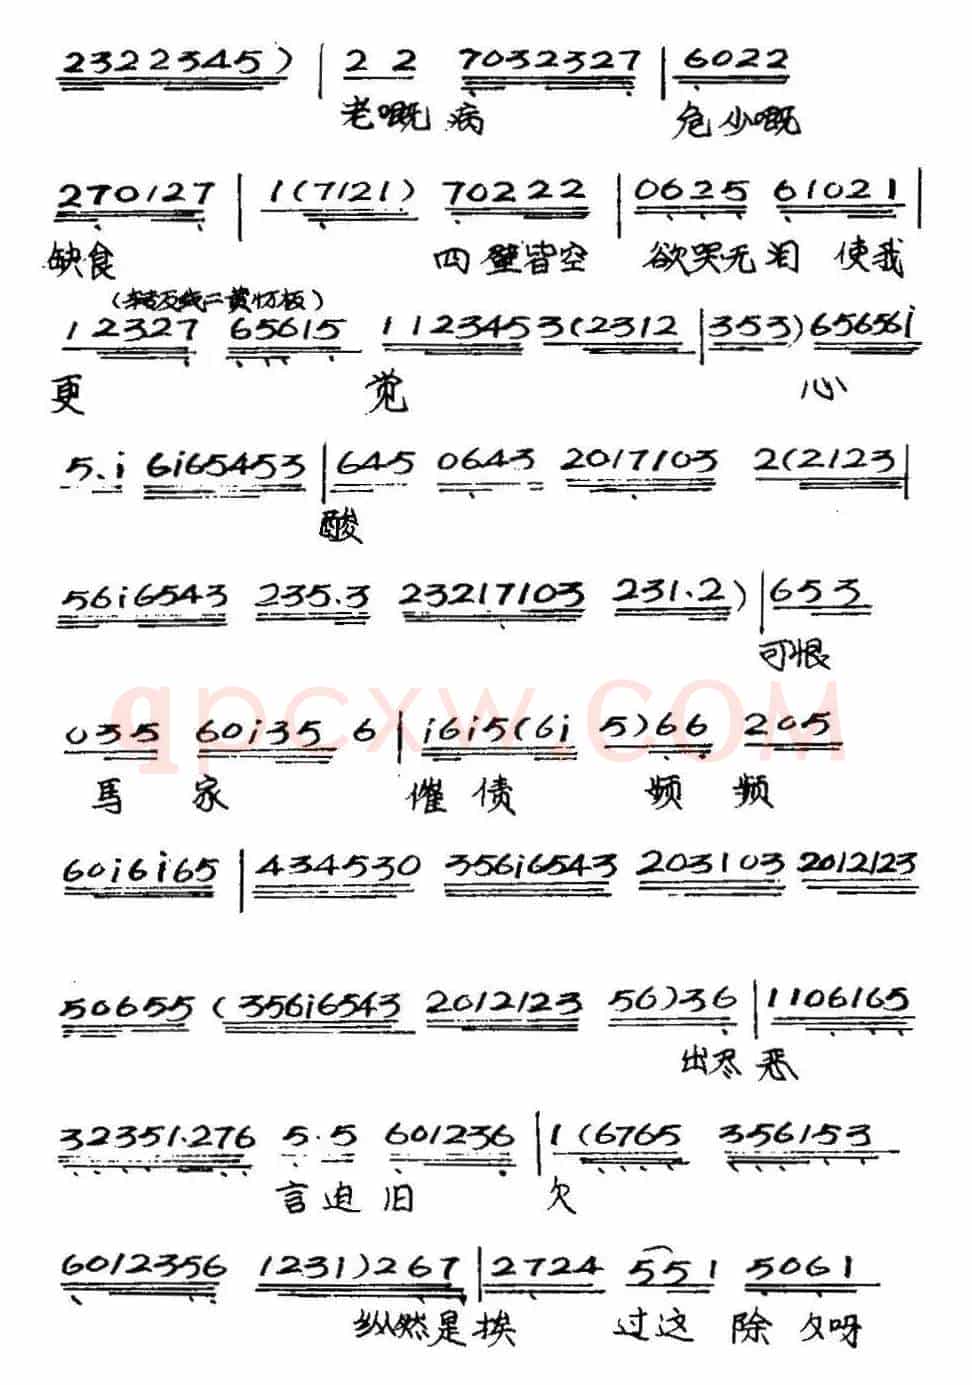 2322345) | 2 2 7032327 | 6022
老嘅病 危少嘅
270127 | 1(7121) 70222 | 0625 61021 |
缺食 四壁皆空 欲哭无泪 使我
(转反线二黄忟板)
12327 65615 1123453(2312 | 353)65656i
更 觉 心
5.i 6i65453 | 645 0643 2017103 2(2123 |
酸
56i6543 235.3 23217103 231.2) | 653
可恨
qpcxw.COM
035 60i35 6 | i6i5(6i 5)66 205
马 家 催 债 频 频
60i6i65 | 434530 356i6543 203103 2012123
50655 (356i6543 2012123 56)36 | 1106165
出尽恶
32351.276 5.5 601236 | 1(6765 356153
言迫旧 欠
6012356 1231)267 | 2724 551 5061
纵然是挨 过这 除夕呀